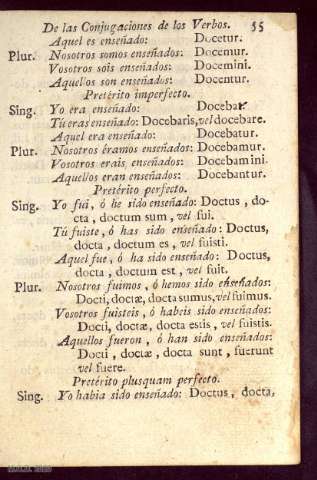 De las Conjugaciones de los Verbos. 55
Aquel es enseñado: Docetur.
Plur. Nosotros somos enseñados: Docemur.
Vosotros sois enseñados: Docemini.
Aquellos son enseñados: Docentur.
Pretérito imperfecto.
Sing. Yo era enseñado: Docebar.
Tú eras enseñado: Docebaris, vel docebare.
Aquel era enseñado: Docebatur.
Plur. Nosotros éramos enseñados: Docebamur.
Vosotros erais enseñados: Docebamini.
Aquellos eran enseñados: Docebantur.
Pretérito perfecto.
Sing. Yo fuí, ó he sido enseñado: Doctus, do-
cta, doctum sum, vel fui.
Tú fuiste, ó has sido enseñado: Doctus,
docta, doctum es, vel fuisti.
Aquel fue, ó ha sido enseñado: Doctus,
docta, doctum est, vel fuit.
Plur. Nosotros fuimos, ó hemos sido enseñados:
Docti, doctæ, docta sumus, vel fuimus.
Vosotros fuisteis, ó habeis sido enseñados:
Docti, doctæ, docta estis, vel fuistis.
Aquellos fueron, ó han sido enseñados:
Docti, doctæ, docta sunt, fuerunt
vel fuere.
Pretérito plusquam perfecto.
Sing. Yo habia sido enseñado: Doctus, docta,